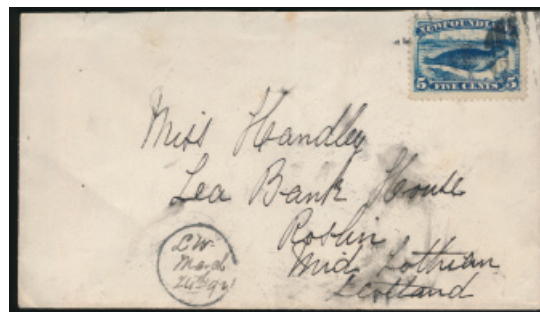 NEWFOUNDLAND
5 FIVE CENTS 5
Miss Handley
Lea Bank House
Roslin
Mid Lothian
Scotland
L.W.
March